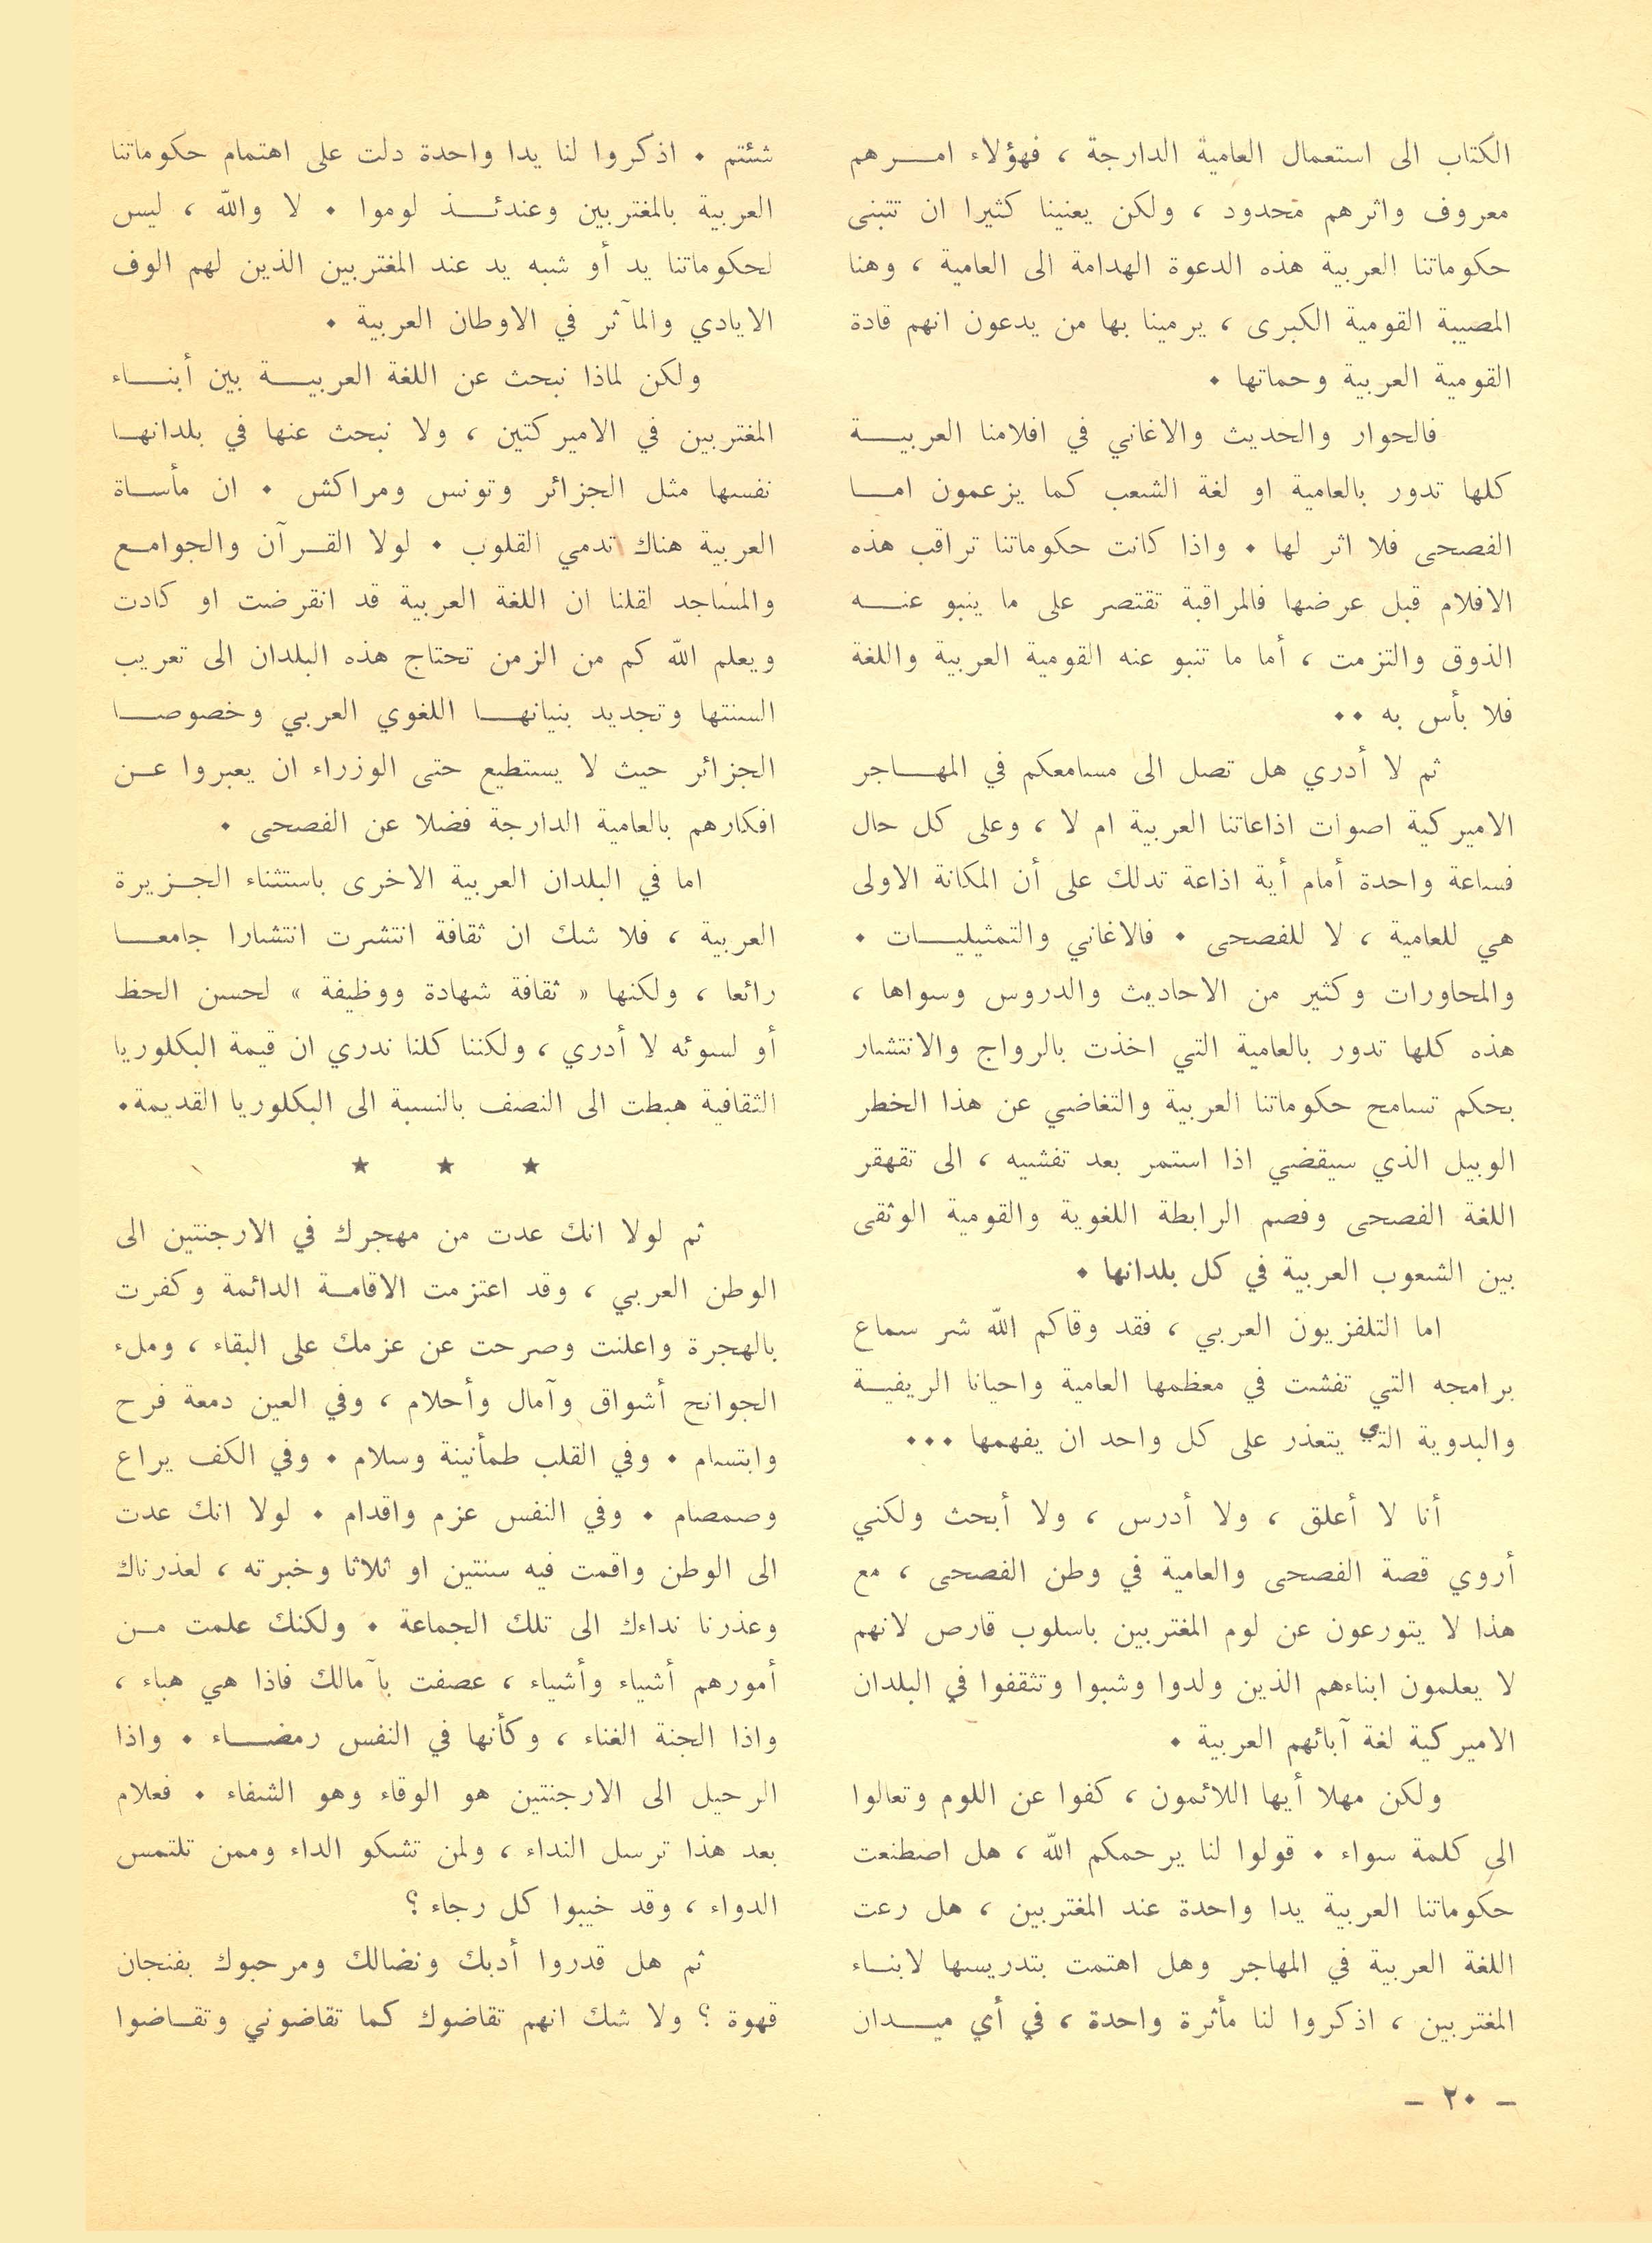 الكتاب الى استعمال العامية الدارجة ، فهؤلاء امرهم
معروف واثرهم محدود ، ولكن يعنينا كثيرا ان تتبنى
حكوماتنا العربية هذه الدعوة الهدامة الى العامية ، وهنا
المصيبة القومية الكبرى ، يرمينا بها من يدعون انهم قادة
القومية العربية وحماتها .
فالحوار والحديث والاغاني في افلامنا العربية
كلها تدور بالعامية او لغة الشعب كما يزعمون اما
الفصحى فلا اثر لها . واذا كانت حكوماتنا تراقب هذه
الافلام قبل عرضها فالمراقبة تقتصر على ما ينبو عنه
الذوق والتزمت ، أما ما تنبو عنه القومية العربية واللغة
فلا بأس به ..
ثم لا أدري هل تصل الى مسامعكم في المهاجر
الاميركية اصوات اذاعاتنا العربية ام لا ، وعلى كل حال
فساعة واحدة أمام أية اذاعة تدلك على أن المكانة الاولى
هي للعامية ، لا للفصحى . فالاغاني والتمثيليات .
والمحاورات وكثير من الاحاديث والدروس وسواها ،
هذه كلها تدور بالعامية التي اخذت بالرواج والانتشار
بحكم تسامح حكوماتنا العربية والتغاضي عن هذا الخطر
الوبيل الذي سيقضي اذا استمر بعد تفشيه ، الى تقهقر
اللغة الفصحى وفصم الرابطة اللغوية والقومية الوثقى
بين الشعوب العربية في كل بلدانها .
اما التلفزيون العربي ، فقد وقاكم الله شر سماع
برامجه التي تفشت في معظمها العامية واحيانا الريفية
والبدوية التي يتعذر على كل واحد ان يفهمها ...
أنا لا أعلق ، ولا أدرس ، ولا أبحث ولكني
أروي قصة الفصحى والعامية في وطن الفصحى ، مع
هذا لا يتورعون عن لوم المغتربين باسلوب قارص لانهم
لا يعلمون ابناءهم الذين ولدوا وشبوا وتثقفوا في البلدان
الاميركية لغة آبائهم العربية .
ولكن مهلا أيها اللائمون ، كفوا عن اللوم وتعالوا
الى كلمة سواء . قولوا لنا يرحمكم الله ، هل اصطنعت
حكوماتنا العربية يدا واحدة عند المغتربين ، هل رعت
اللغة العربية في المهاجر وهل اهتمت بتدريسها لابناء
المغتربين ، اذكروا لنا مأثرة واحدة ، في أي ميدان
شئتم . اذكروا لنا يدا واحدة دلت على اهتمام حكوماتنا
العربية بالمغتربين وعندئذ لوموا . لا والله ، ليس
لحكوماتنا يد أو شبه يد عند المغتربين الذين لهم الوف
الايادي والمآثر في الاوطان العربية .
ولكن لماذا نبحث عن اللغة العربية بين أبناء
المغتربين في الاميركتين ، ولا نبحث عنها في بلدانها
نفسها مثل الجزائر وتونس ومراكش . ان مأساة
العربية هناك تدمي القلوب . لولا القرآن والجوامع
والمساجد لقلنا ان اللغة العربية قد انقرضت او كادت
ويعلم الله كم من الزمن تحتاج هذه البلدان الى تعريب
السنتها وتجديد بنيانها اللغوي العربي وخصوصا
الجزائر حيث لا يستطيع حتى الوزراء ان يعبروا عن
افكارهم بالعامية الدارجة فضلا عن الفصحى .
اما في البلدان العربية الاخرى باستثناء الجزيرة
العربية ، فلا شك ان ثقافة انتشرت انتشارا جامعا
رائعا ، ولكنها « ثقافة شهادة ووظيفة » لحسن الحظ
أو لسوئه لا أدري ، ولكننا كلنا ندري ان قيمة البكلوريا
الثقافية هبطت الى النصف بالنسبة الى البكلوريا القديمة.
★ ★ ★
ثم لولا انك عدت من مهجرك في الارجنتين الى
الوطن العربي ، وقد اعتزمت الاقامة الدائمة وكفرت
بالهجرة واعلنت وصرحت عن عزمك على البقاء ، وملء
الجوانح أشواق وآمال وأحلام ، وفي العين دمعة فرح
وابتسام . وفي القلب طمأنينة وسلام . وفي الكف يراع
وصمصام . وفي النفس عزم واقدام . لولا انك عدت
الى الوطن واقمت فيه سنتين او ثلاثا وخبرته ، لعذرناك
وعذرنا نداءك الى تلك الجماعة . ولكنك علمت من
أمورهم أشياء وأشياء ، عصفت بآمالك فاذا هي هباء ،
واذا الجنة الغناء ، وكأنها في النفس رمضاء . واذا
الرحيل الى الارجنتين هو الوقاء وهو الشفاء . فعلام
بعد هذا ترسل النداء ، ولمن تشكو الداء وممن تلتمس
الدواء ، وقد خيبوا كل رجاء ؟
ثم هل قدروا أدبك ونضالك ومرحبوك بفنجان
قهوة ؟ ولا شك انهم تقاضوك كما تقاضوني وتقاضوا
– ٢٠ –